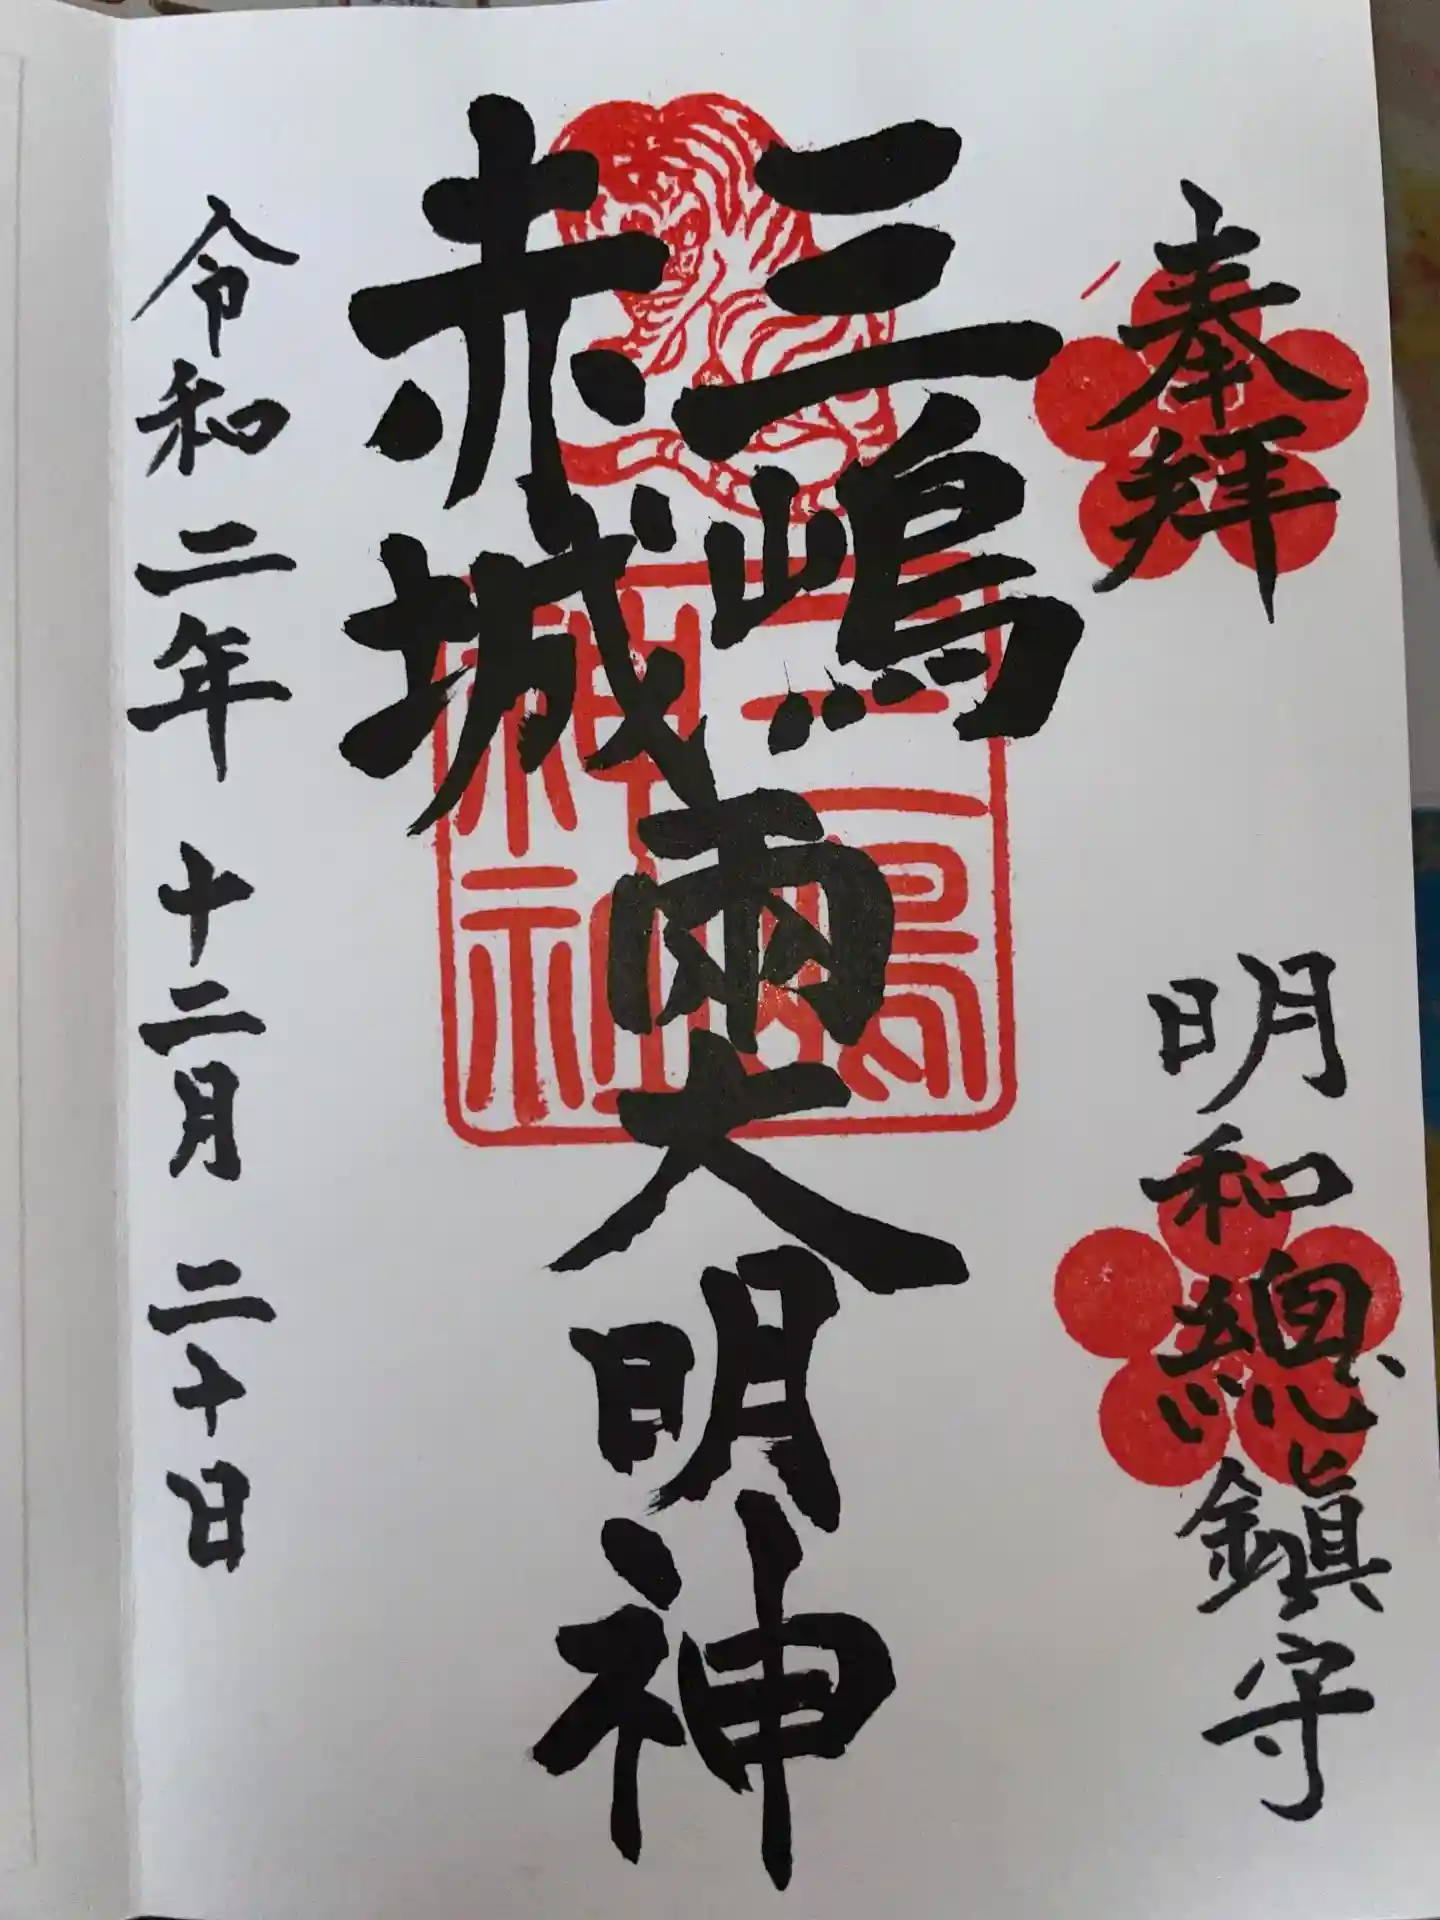 奉拝
明和總鎮守
三嶋
赤城
兩大明神
三島神社
令和二年 十二月 二十日